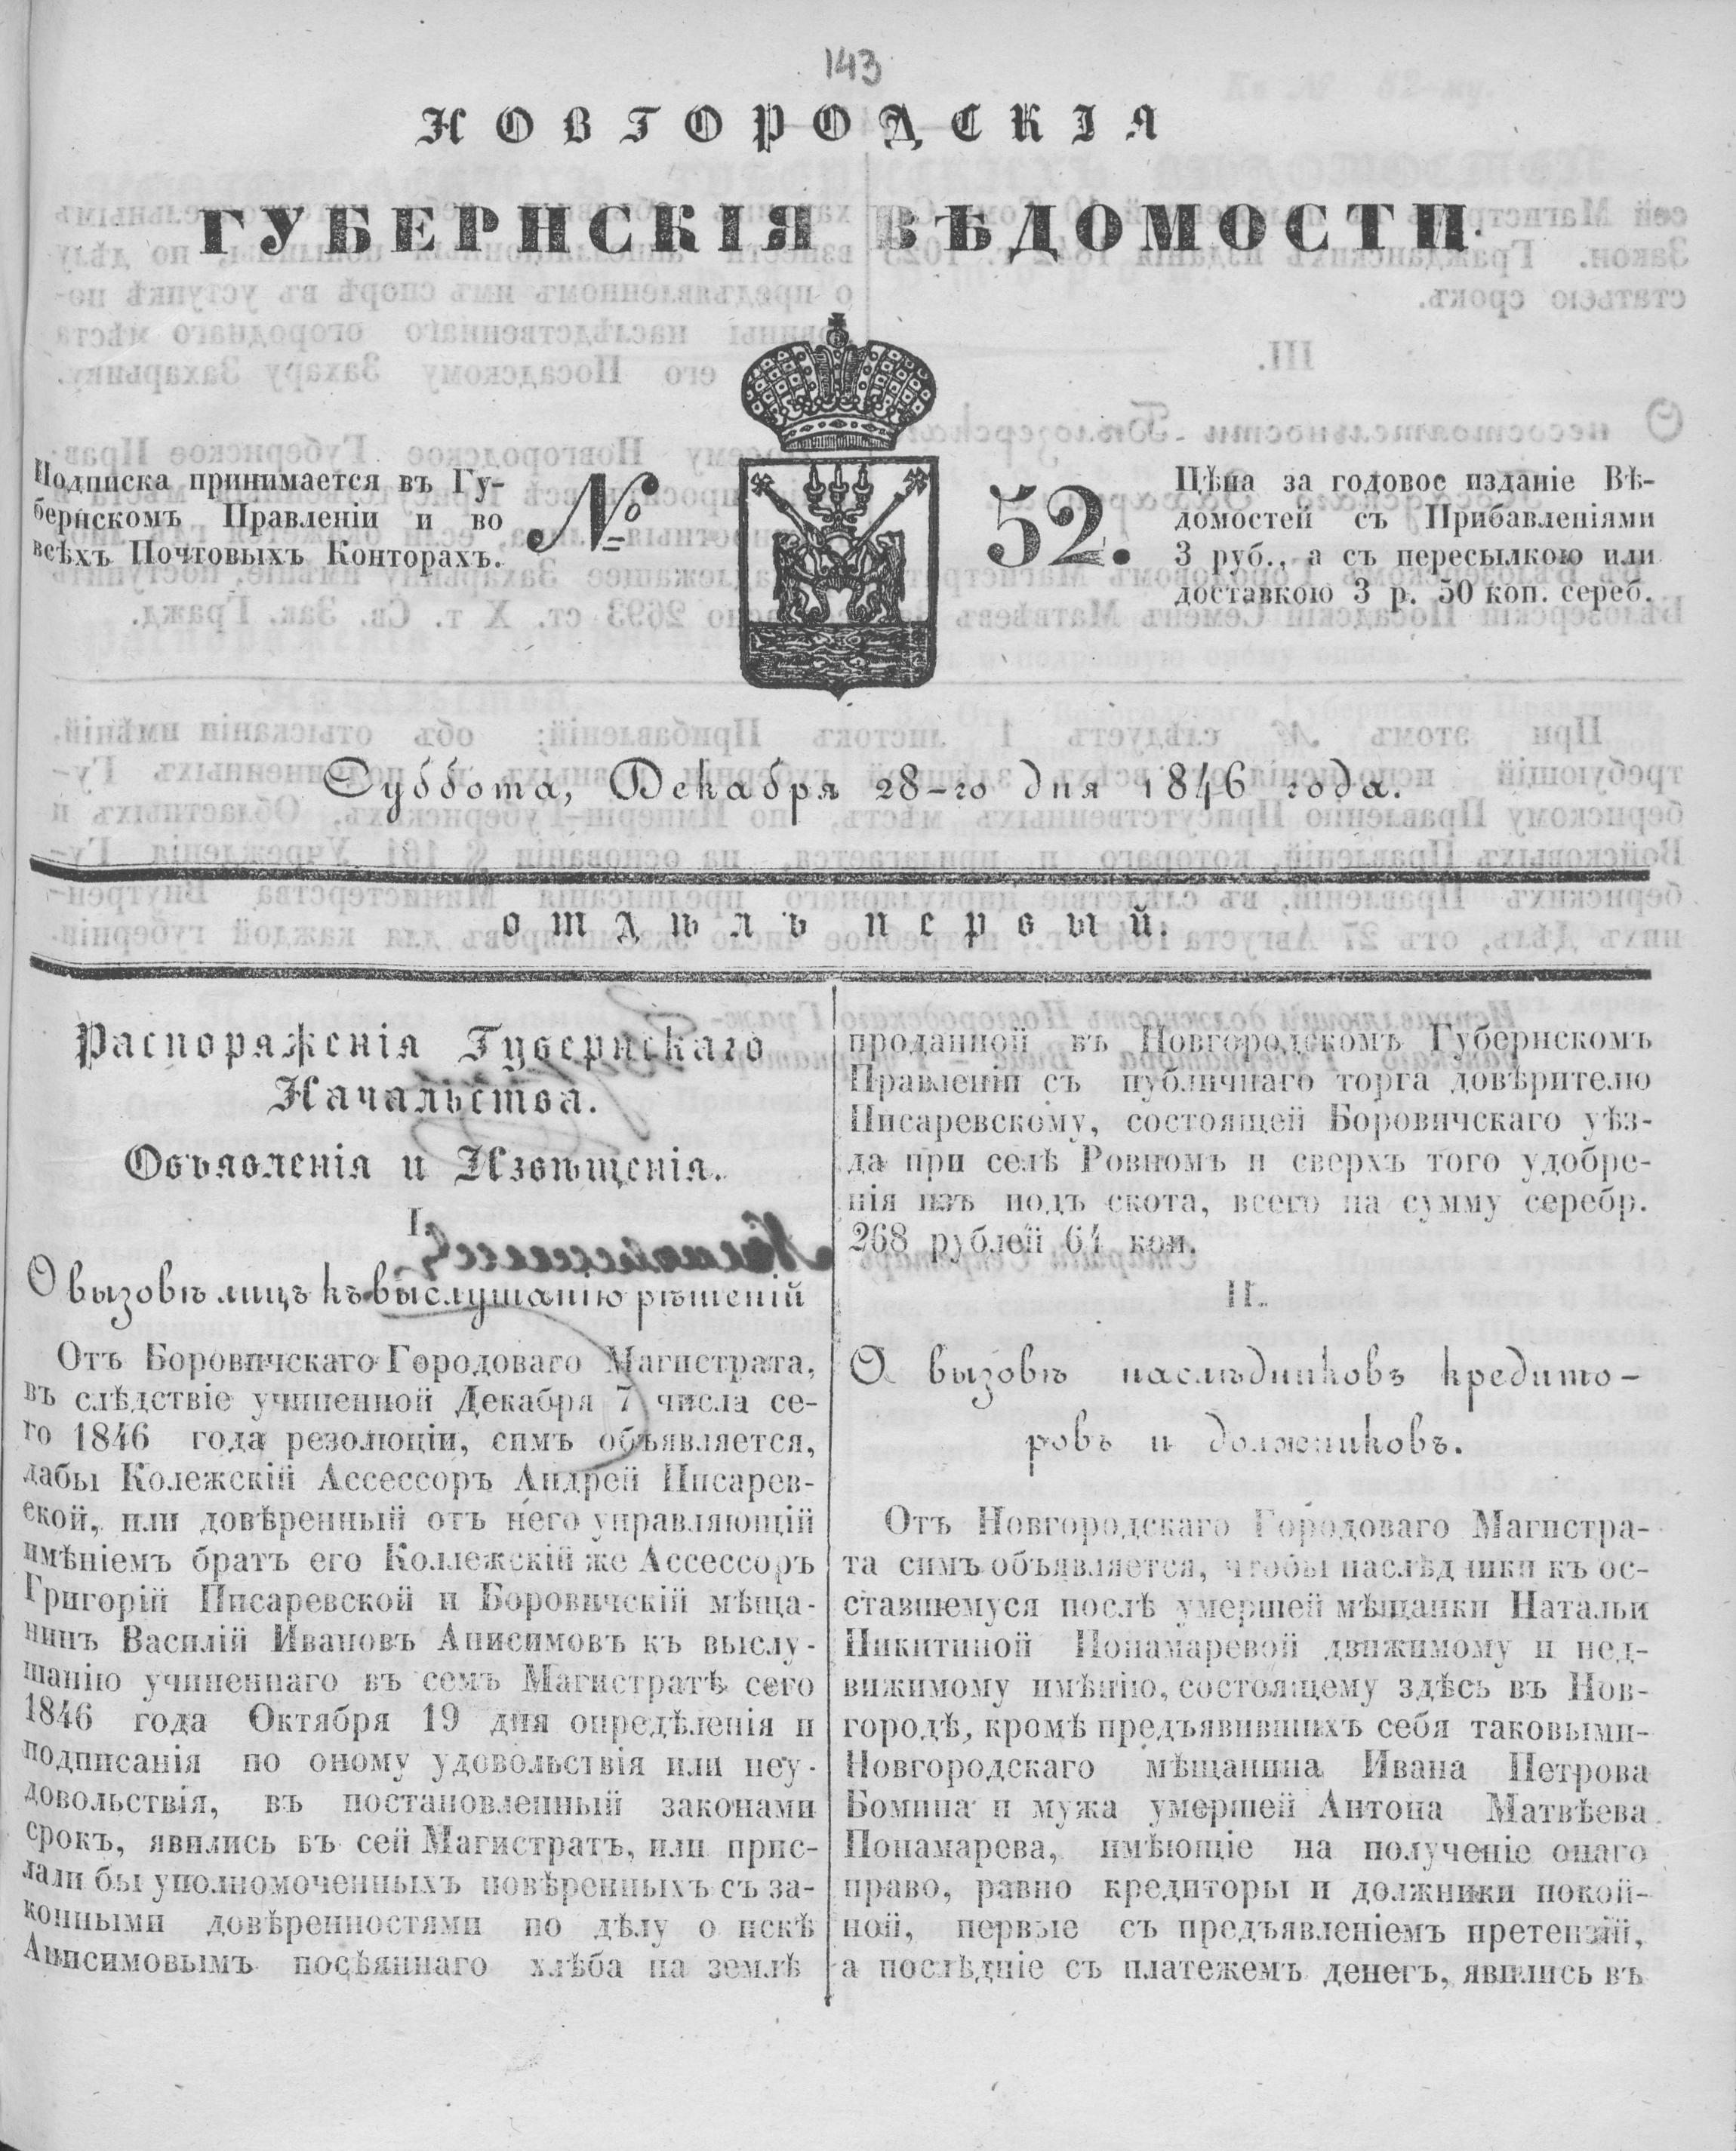 143
НОВГОРОДСКІЯ
ГУБЕРНСКІЯ ВѢДОМОСТИ.
Подписка принимается въ Гу-
бернскомъ Правленіи и во
всѣхъ Почтовыхъ Конторахъ.
№ 52.
Цѣна за годовое изданіе Вѣ-
домостей съ Прибавленіями
3 руб., а съ пересылкою или
доставкою 3 р. 50 коп. сереб.
Суббота, Декабря 28-го дня 1846 года.
ОТДѢЛЪ ПЕРВЫЙ.
Распоряженія Губернскаго
Начальства.
Объявленія и Извѣщенія.
I.
О вызовѣ лицъ къ выслушанію рѣшеній
Отъ Боровичскаго Городоваго Магистрата,
въ слѣдствіе учиненной Декабря 7 числа се-
го 1846 года резолюціи, симъ объявляется,
дабы Колежскій Ассессоръ Андрей Писарев-
ской, или довѣренный отъ него управляющій
имѣніемъ братъ его Коллежскій же Ассессоръ
Григорій Писаревской и Боровичскій мѣща-
нинъ Василій Ивановъ Анисимовъ къ выслу-
шанію учиненнаго въ семъ Магистратѣ сего
1846 года Октября 19 дня опредѣленія и
подписанія по оному удовольствія или неу-
довольствія, въ постановленный законами
срокъ, явились въ сей Магистратъ, или прис-
лали бы уполномоченныхъ повѣренныхъ съ за-
конными довѣренностями по дѣлу о искѣ
Анисимовымъ посѣяннаго хлѣба на землѣ
проданной въ Новгородскомъ Губернскомъ
Правленіи съ публичнаго торга довѣрителю
Писаревскому, состоящей Боровичскаго уѣз-
да при селѣ Ровномъ и сверхъ того удобре-
нія изъ подъ скота, всего на сумму серебр.
268 рублей 64 коп.
II.
О вызовѣ наслѣдниковъ кредито-
ровъ и должниковъ.
Отъ Новгородскаго Городоваго Магистра-
та симъ объявляется, чтобы наслѣдники къ ос-
ставшемуся послѣ умершей мѣщанки Натальи
Никитиной Понамаревой движимому и нед-
вижимому имѣнію, состоящему здѣсь въ Нов-
городѣ, кромѣ предъявившихъ себя таковыми-
Новгородскаго мѣщанина Ивана Петрова
Бомина и мужа умершей Антона Матвѣева
Понамарева, имѣющіе на полученіе онаго
право, равно кредиторы и должники покой-
ной, первые съ предъявленіемъ претензій,
а послѣдніе съ платежемъ денегъ, явились въ